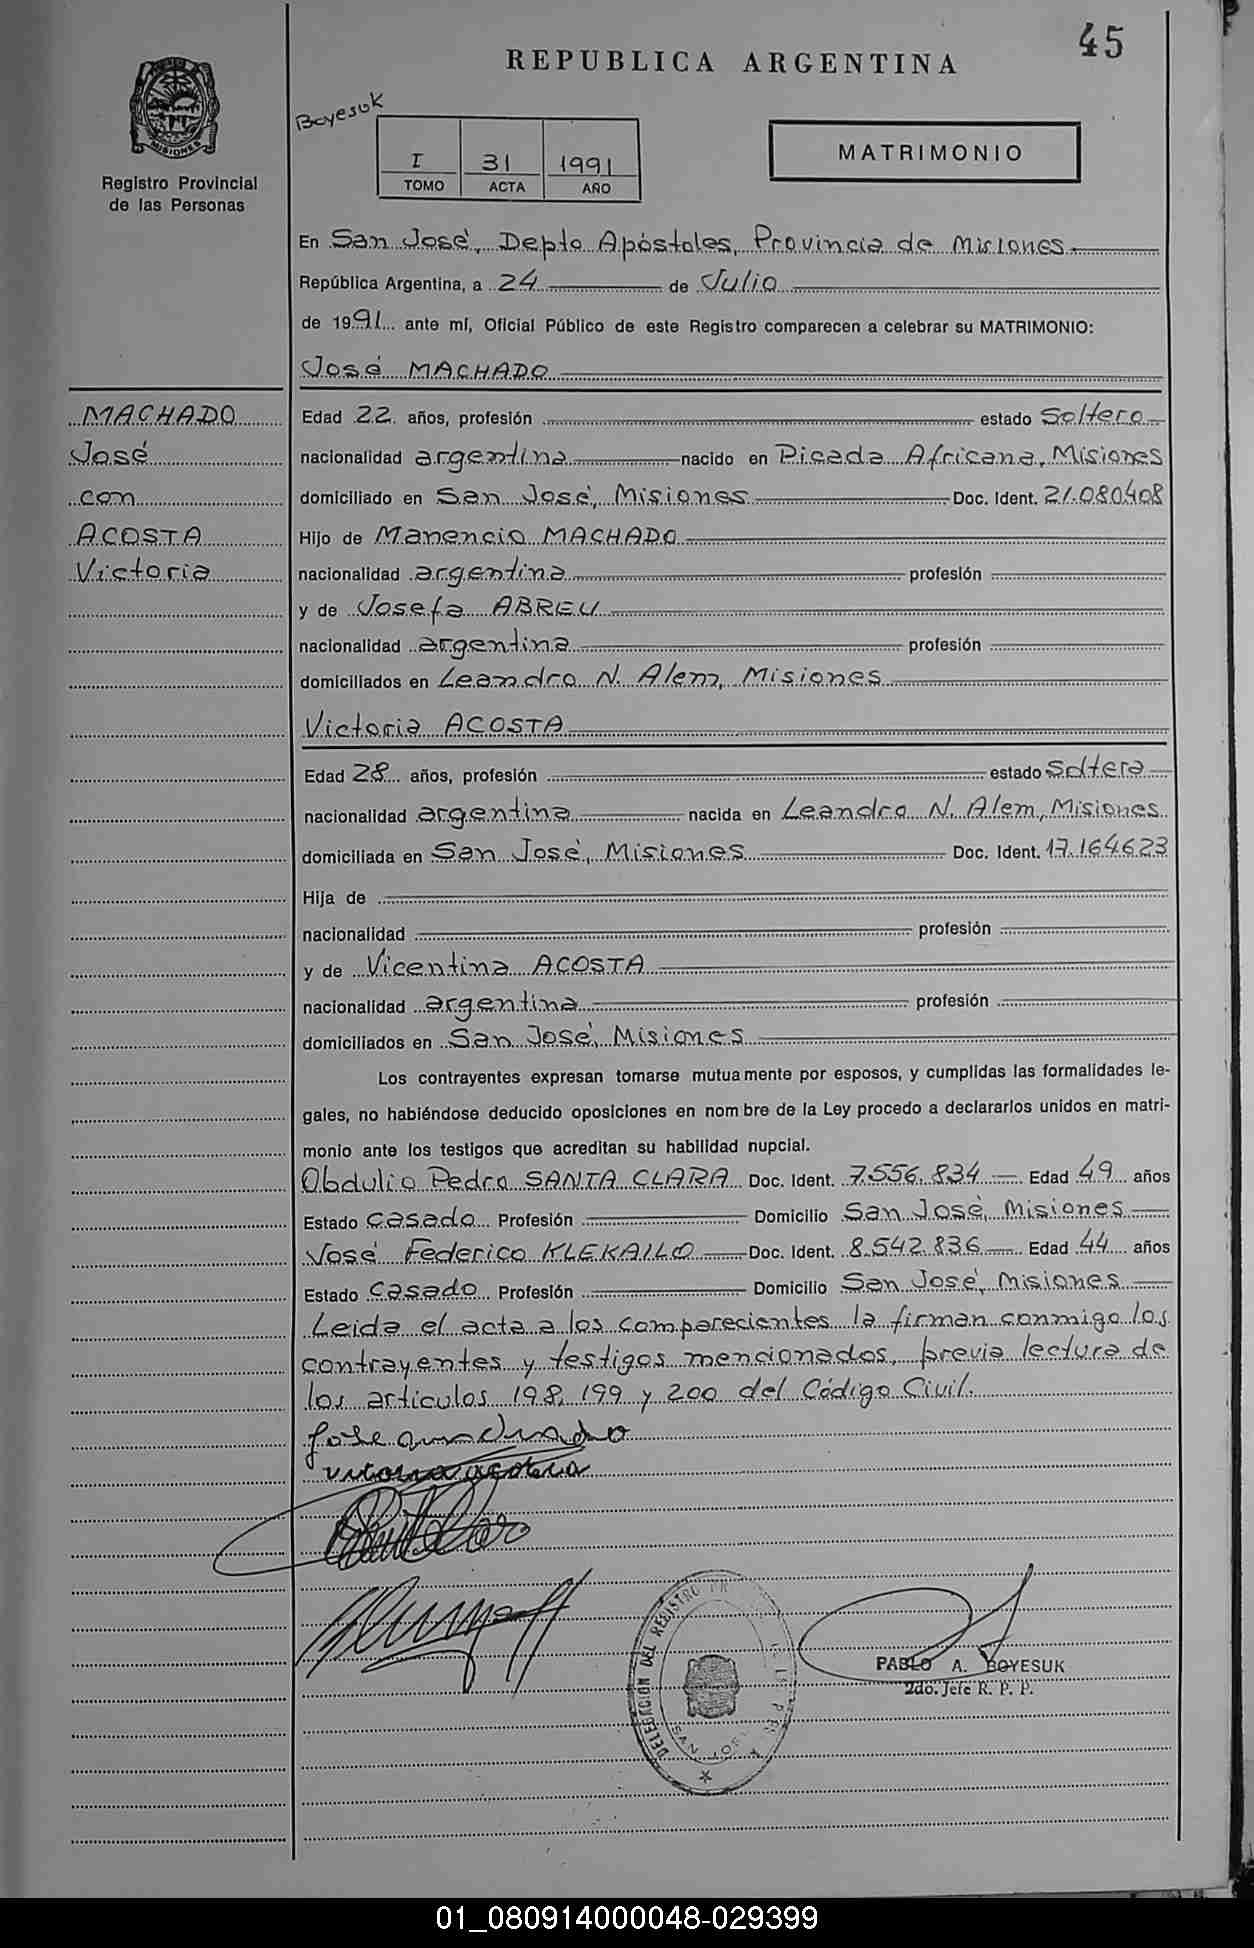 45
REPUBLICA ARGENTINA
Boyesuk
MISIONES
Registro Provincial
de las Personas
I 31 1991
TOMO ACTA AÑO
MATRIMONIO
En San José, Depto Apóstoles, Provincia de Misiones
República Argentina, a 24 de Julio
de 1991 ante mí, Oficial Público de este Registro comparecen a celebrar su MATRIMONIO:
José MACHADO
MACHADO
José
con
ACOSTA
Victoria
Edad 22 años, profesión estado Soltero
nacionalidad argentina nacido en Picada Africana, Misiones
domiciliado en San José, Misiones Doc. Ident. 21.080408
Hijo de Manencio MACHADO
nacionalidad argentina profesión
y de Josefa ABREU
nacionalidad argentina profesión
domiciliados en Leandro N. Alem, Misiones
Victoria ACOSTA
Edad 28 años, profesión estado Soltera
nacionalidad argentina nacida en Leandro N. Alem, Misiones
domiciliada en San José, Misiones Doc. Ident. 17.164623
Hija de
nacionalidad profesión
y de Vicentina ACOSTA
nacionalidad argentina profesión
domiciliados en San José, Misiones
Los contrayentes expresan tomarse mutuamente por esposos, y cumplidas las formalidades le-
gales, no habiéndose deducido oposiciones en nombre de la Ley procedo a declararlos unidos en matri-
monio ante los testigos que acreditan su habilidad nupcial.
Obdulio Pedro SANTA CLARA Doc. Ident. 7.556.834 Edad 49 años
Estado casado Profesión Domicilio San José, Misiones
José Federico KLEKAILO Doc. Ident. 8.542.836 Edad 44 años
Estado casado Profesión Domicilio San José, Misiones
Leida el acta a los comparecientes la firman conmigo los
contrayentes y testigos mencionados, previa lectura de
los articulos 198, 199 y 200 del Código Civil.
Jose machado
victoria acosta
DELEGACION DEL REGISTRO
SAN JOSE
PABLO A. BOYESUK
2do. Jefe R. P. P.
01_080914000048-029399